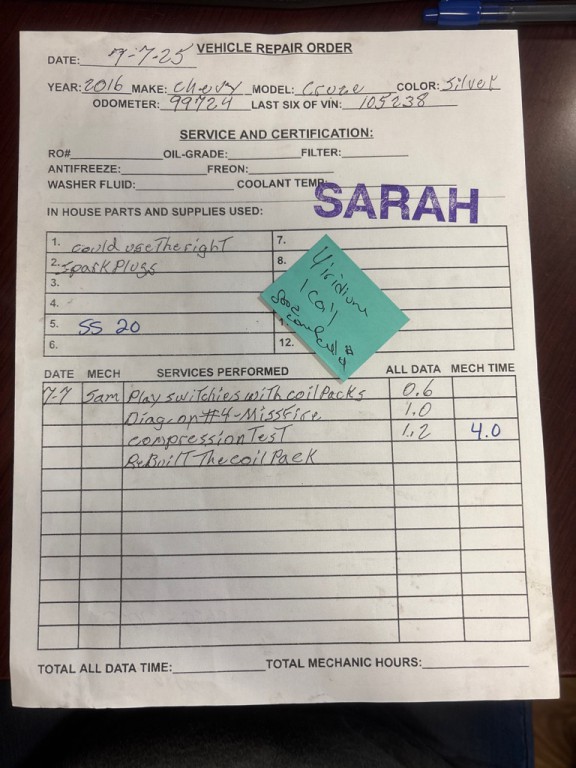 VEHICLE REPAIR ORDER
DATE: 7-7-25
YEAR: 2016 MAKE: Chevy MODEL: Cruze COLOR: Silver
ODOMETER: 99724 LAST SIX OF VIN: 105238
SERVICE AND CERTIFICATION:
RO# OIL-GRADE: FILTER:
ANTIFREEZE: FREON:
WASHER FLUID: COOLANT TEMP:
SARAH
IN HOUSE PARTS AND SUPPLIES USED:
1. could use The right 7.
2. Spark Plugs 8.
3.
4.
5. SS 20
6. 12.
4 iridium
1 Coil
good comp
DATE MECH SERVICES PERFORMED ALL DATA MECH TIME
7-7 Sam Play switchies with coil Packs 0.6
Diag. on #4-MissFire 1.0
compression Test 1.2 4.0
ReBuilT The coil Pack
TOTAL ALL DATA TIME: TOTAL MECHANIC HOURS: